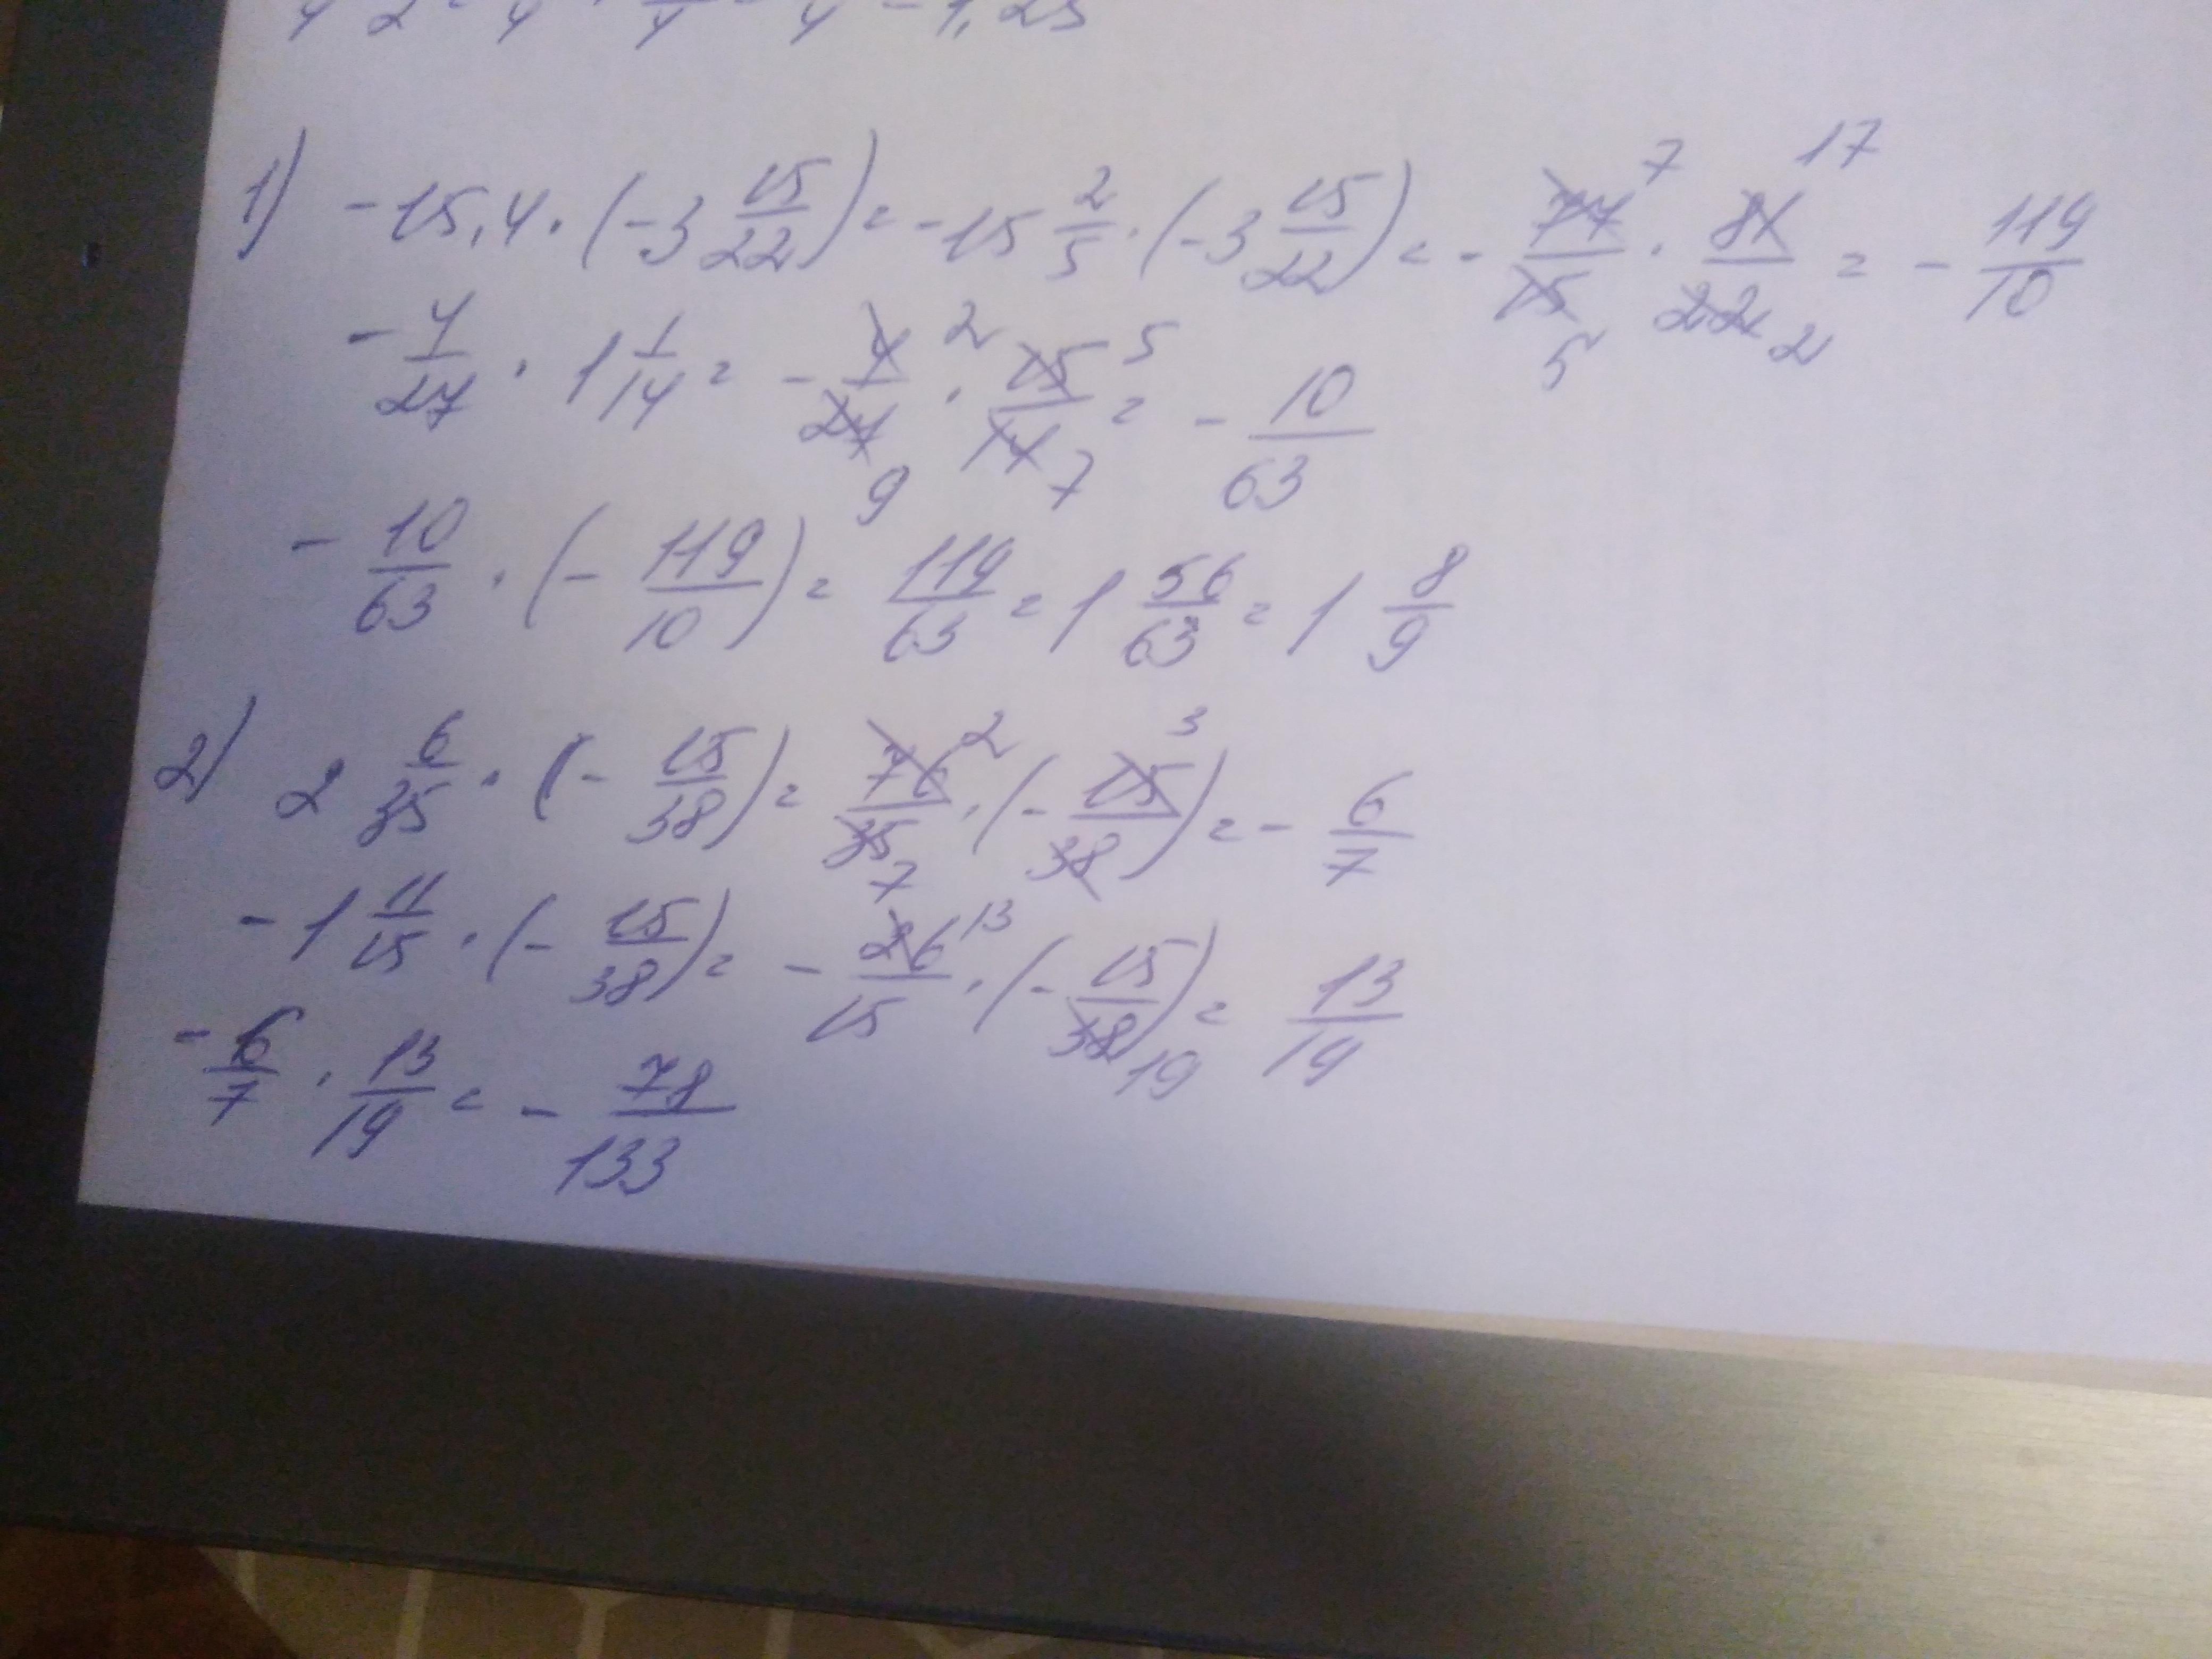 1) -15,4 · (-3 15/22) = -15 2/5 · (-3 15/22) = - 77/15 7/5 · 81/22 17/2 = - 119/10
- 4/27 · 1 1/14 = - 4/27 2/9 · 15/14 5/7 = - 10/63
- 10/63 · (- 119/10) = 119/63 = 1 56/63 = 1 8/9
2) 2 6/35 · (- 15/38) = 76/35 2/7 · (- 15/38 3) = - 6/7
- 1 11/15 · (- 15/38) = - 26/15 13 · (- 15/38 19) = 13/19
- 6/7 · 13/19 = - 78/133